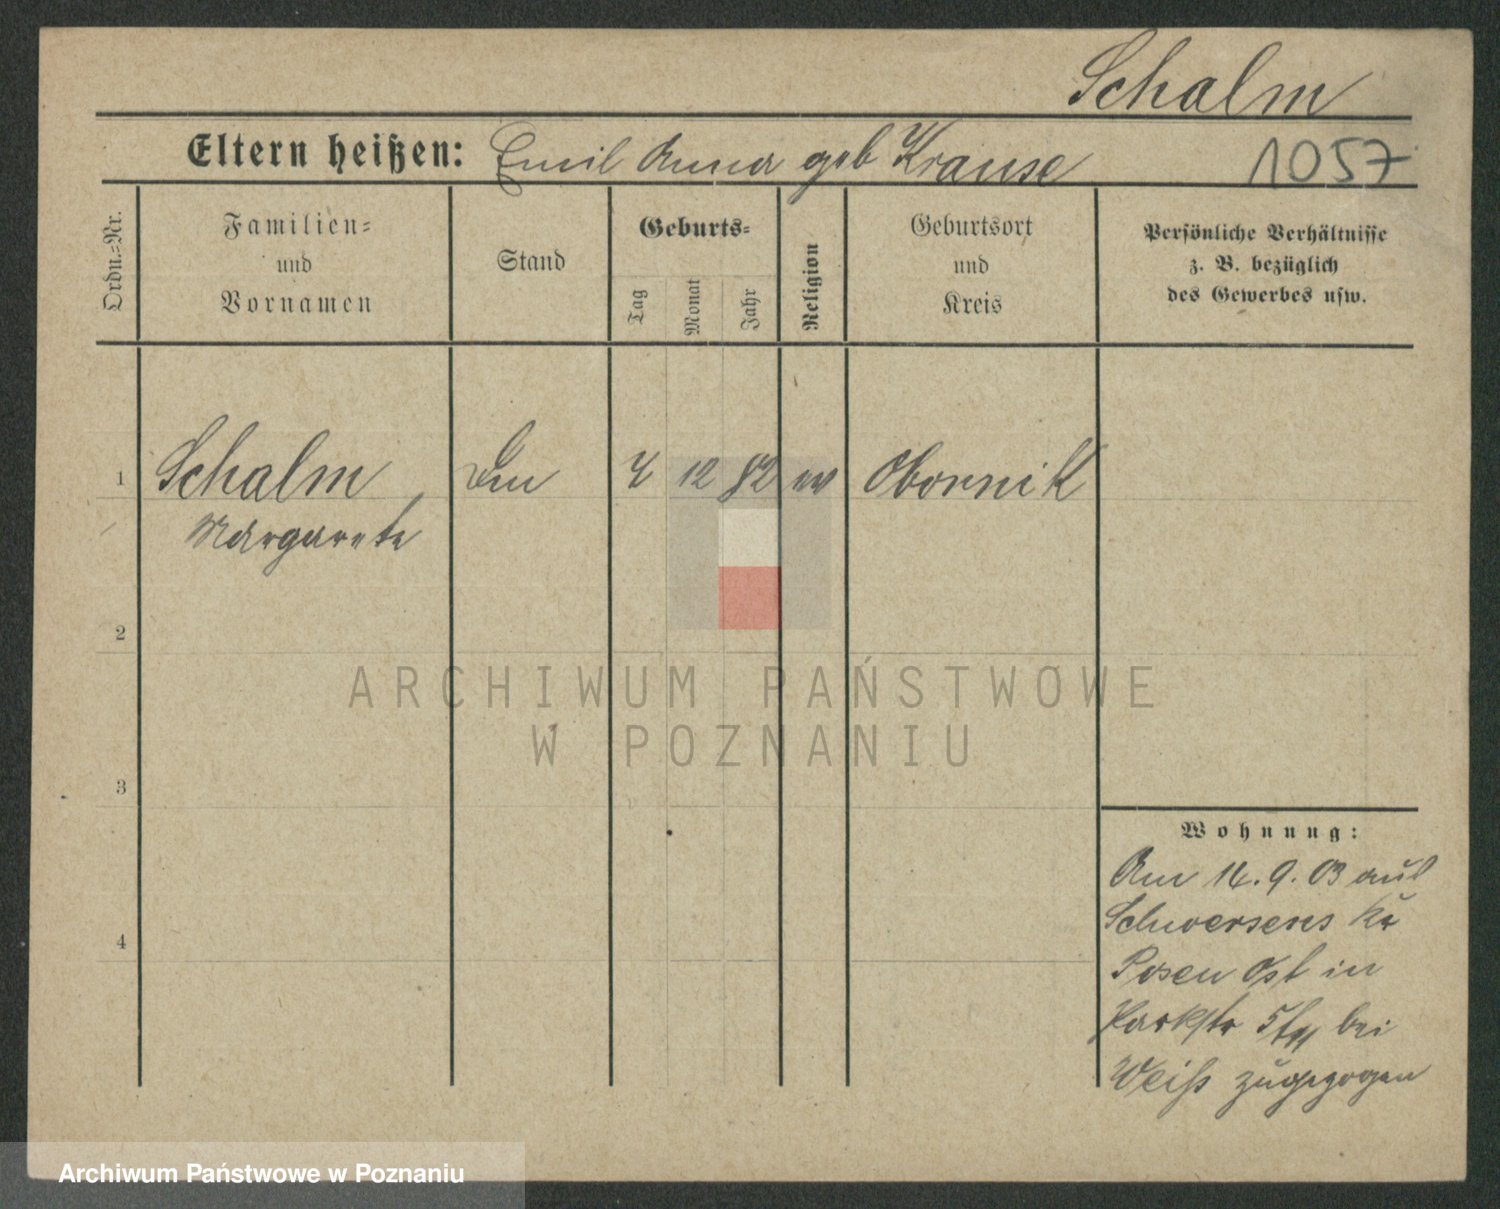 Schalm
Eltern heißen: Emil Anna geb Krause
1057
Ordn.=Nr.
Familien=
und
Vornamen
Stand
Geburts=
Tag
Monat
Jahr
Religion
Geburtsort
und
Kreis
Persönliche Verhältnisse
z. B. bezüglich
des Gewerbes usw.
1 Schalm 12 82 ev Obornik
Margarete
2
3
4
Wohnung:
Am 14. 9. 03 aus
Schwersens Kr
Posen Ost in
Parkstr bei
Weiß zugezogen
ARCHIWUM PAŃSTWOWE
W POZNANIU
Archiwum Państwowe w Poznaniu